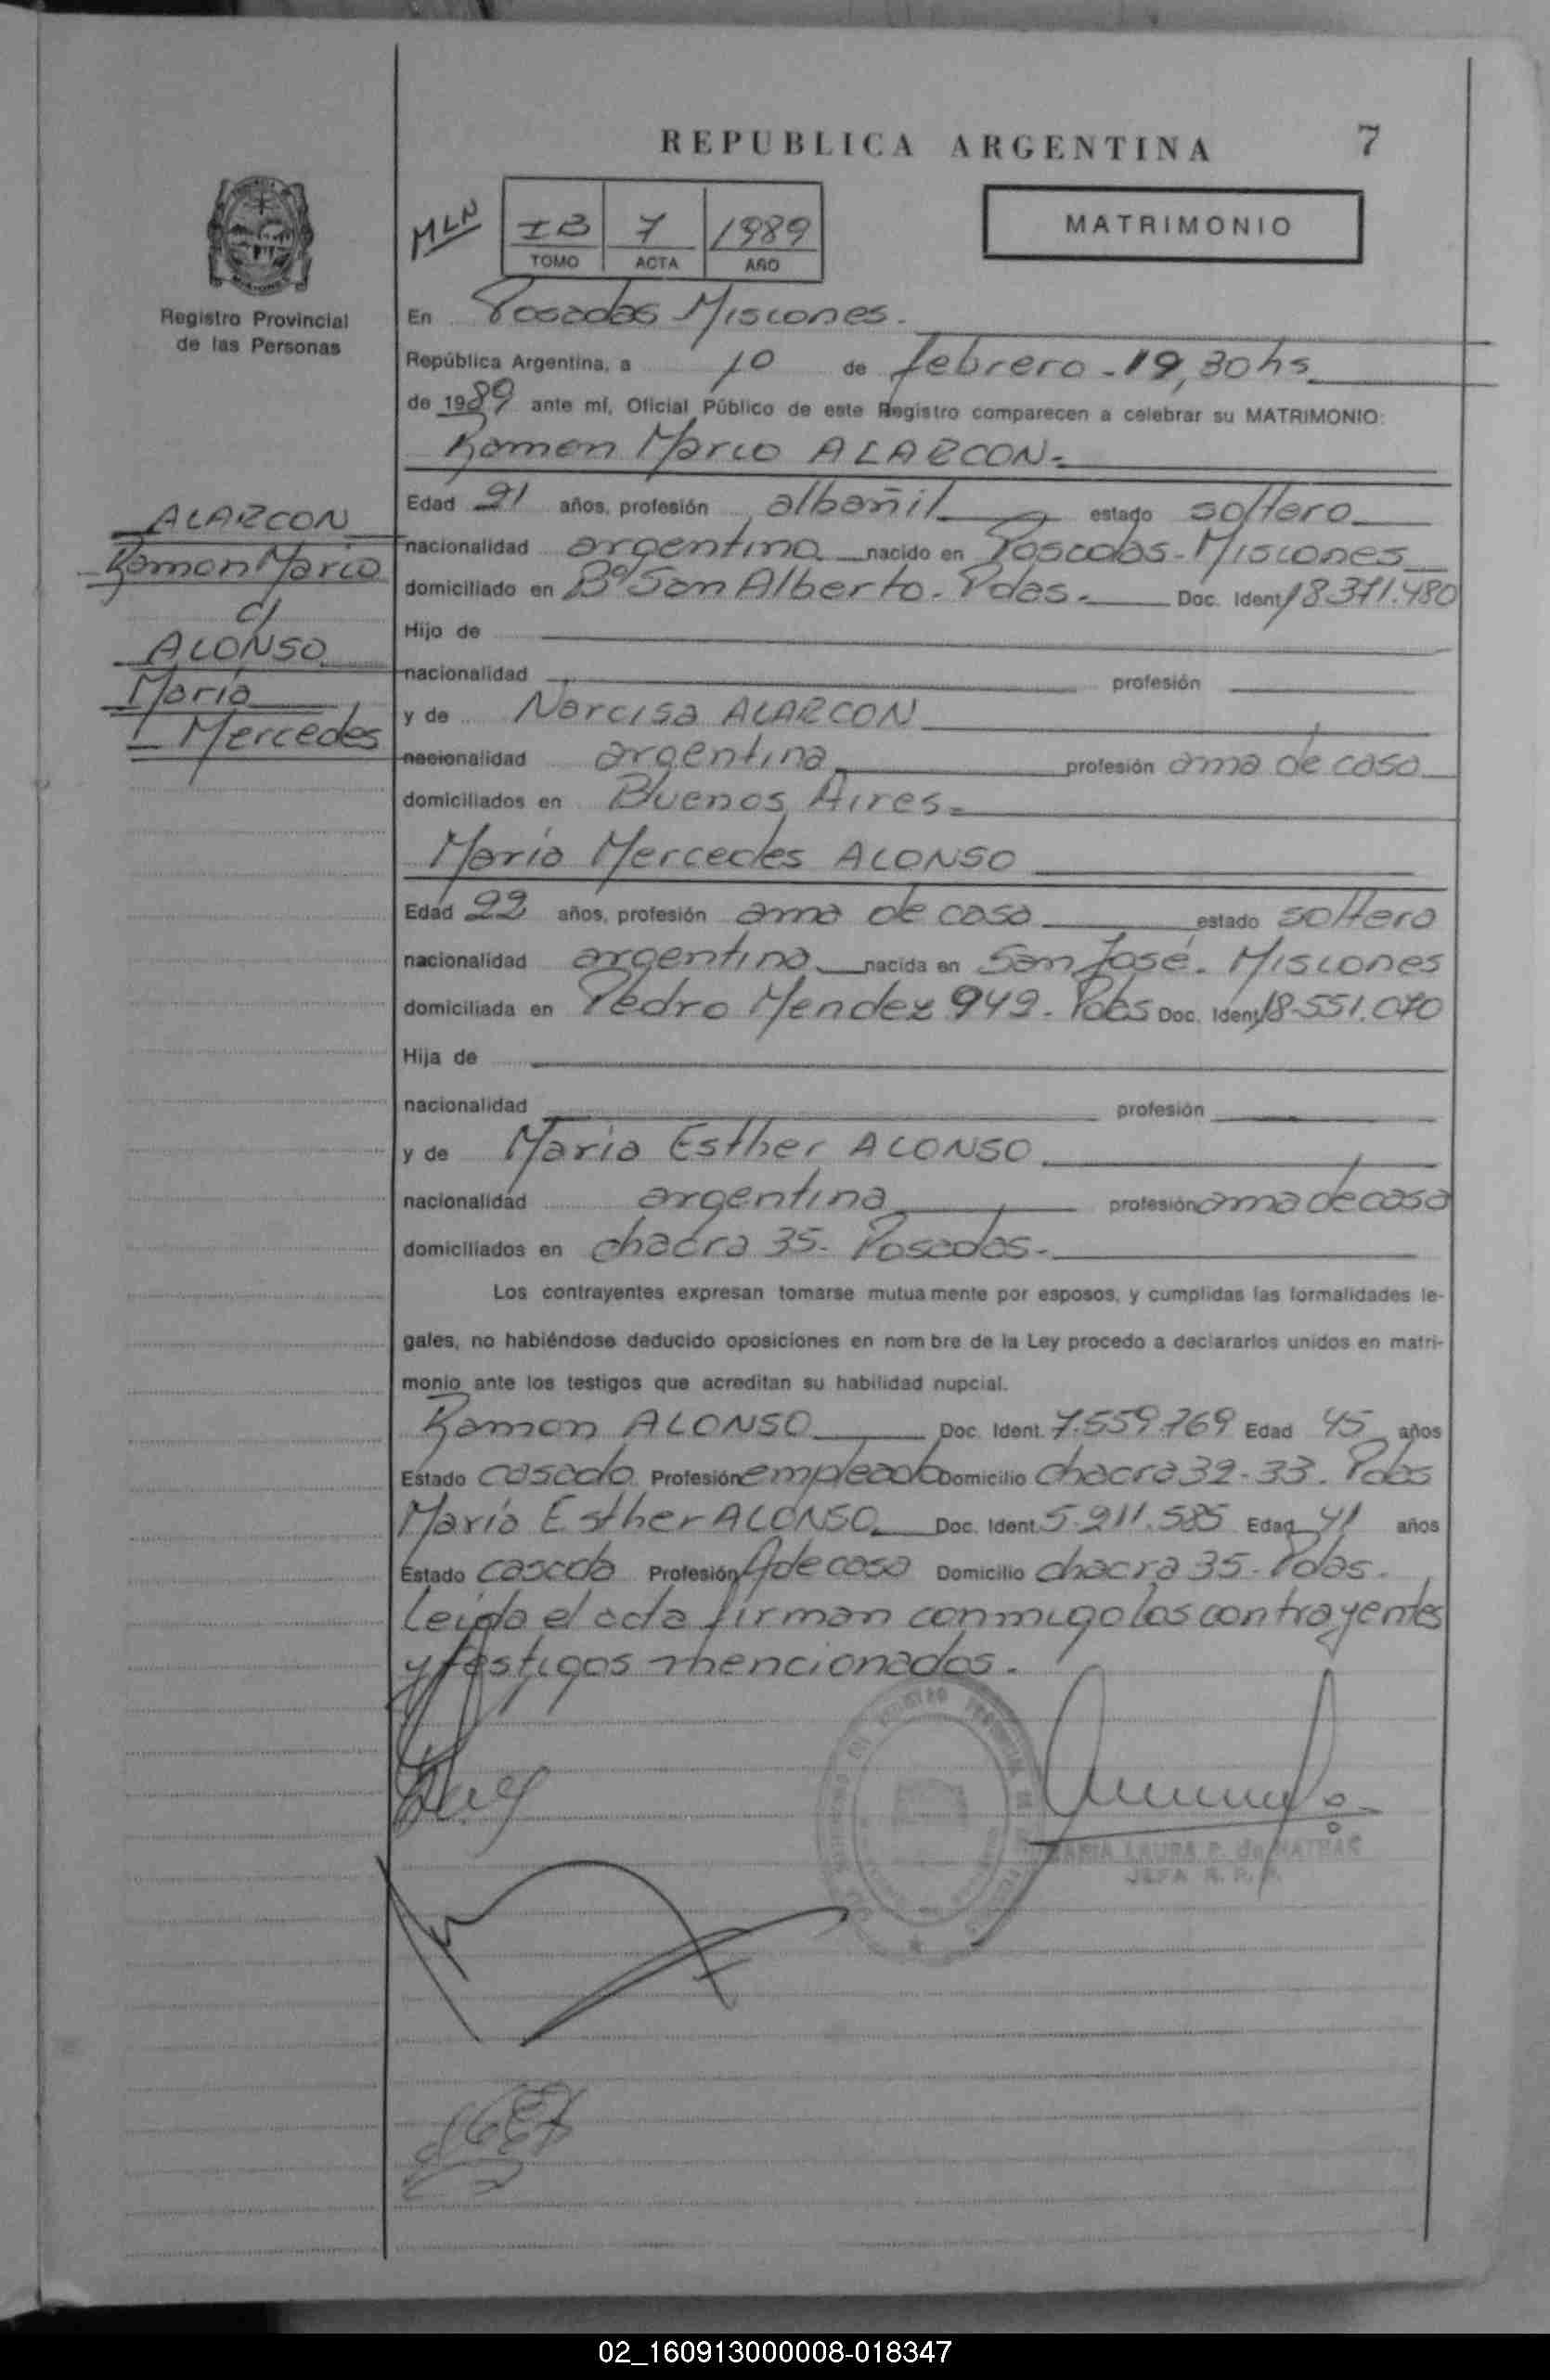 REPUBLICA ARGENTINA
7
MLN
IB 7 1989
TOMO ACTA AÑO
MATRIMONIO
Registro Provincial
de las Personas
En Posadas Misiones.
República Argentina, a 10 de febrero - 19,30 hs
de 1989 ante mí, Oficial Público de este Registro comparecen a celebrar su MATRIMONIO:
Ramon Mario ALARCON-
ALARCON
Ramon Mario
c/
ALONSO
Maria
Mercedes
Edad 21 años, profesión albañil estado soltero
nacionalidad argentina nacido en Posadas-Misiones
domiciliado en Bº San Alberto. Pdas. Doc. Ident 18371.480
Hijo de
nacionalidad profesión
y de Narcisa ALARCON
nacionalidad argentina profesión ama de casa
domiciliados en Buenos Aires-
Maria Mercedes ALONSO
Edad 22 años, profesión ama de casa estado soltera
nacionalidad argentina nacida en San José. Misiones
domiciliada en Pedro Mendez 949. Pdas Doc. Ident 18-551.070
Hija de
nacionalidad profesión
y de Maria Esther ALONSO
nacionalidad argentina profesión ama de casa
domiciliados en chacra 35- Posadas-
Los contrayentes expresan tomarse mutua mente por esposos, y cumplidas las formalidades le-
gales, no habiéndose deducido oposiciones en nom bre de la Ley procedo a declararlos unidos en matri-
monio ante los testigos que acreditan su habilidad nupcial.
Ramon ALONSO Doc. Ident. 7.559.769 Edad 45 años
Estado casado Profesión empleado Domicilio chacra 32-33. Pdas
Maria Esther ALONSO Doc. Ident 5.211.585 Edad 41 años
Estado casada Profesión A de casa Domicilio chacra 35-Pdas.
Leida el acta firman conmigo los contrayentes
y testigos mencionados.
MARIA LAURA P. de MATRAS
JEFA R. P. P.
02_160913000008-018347